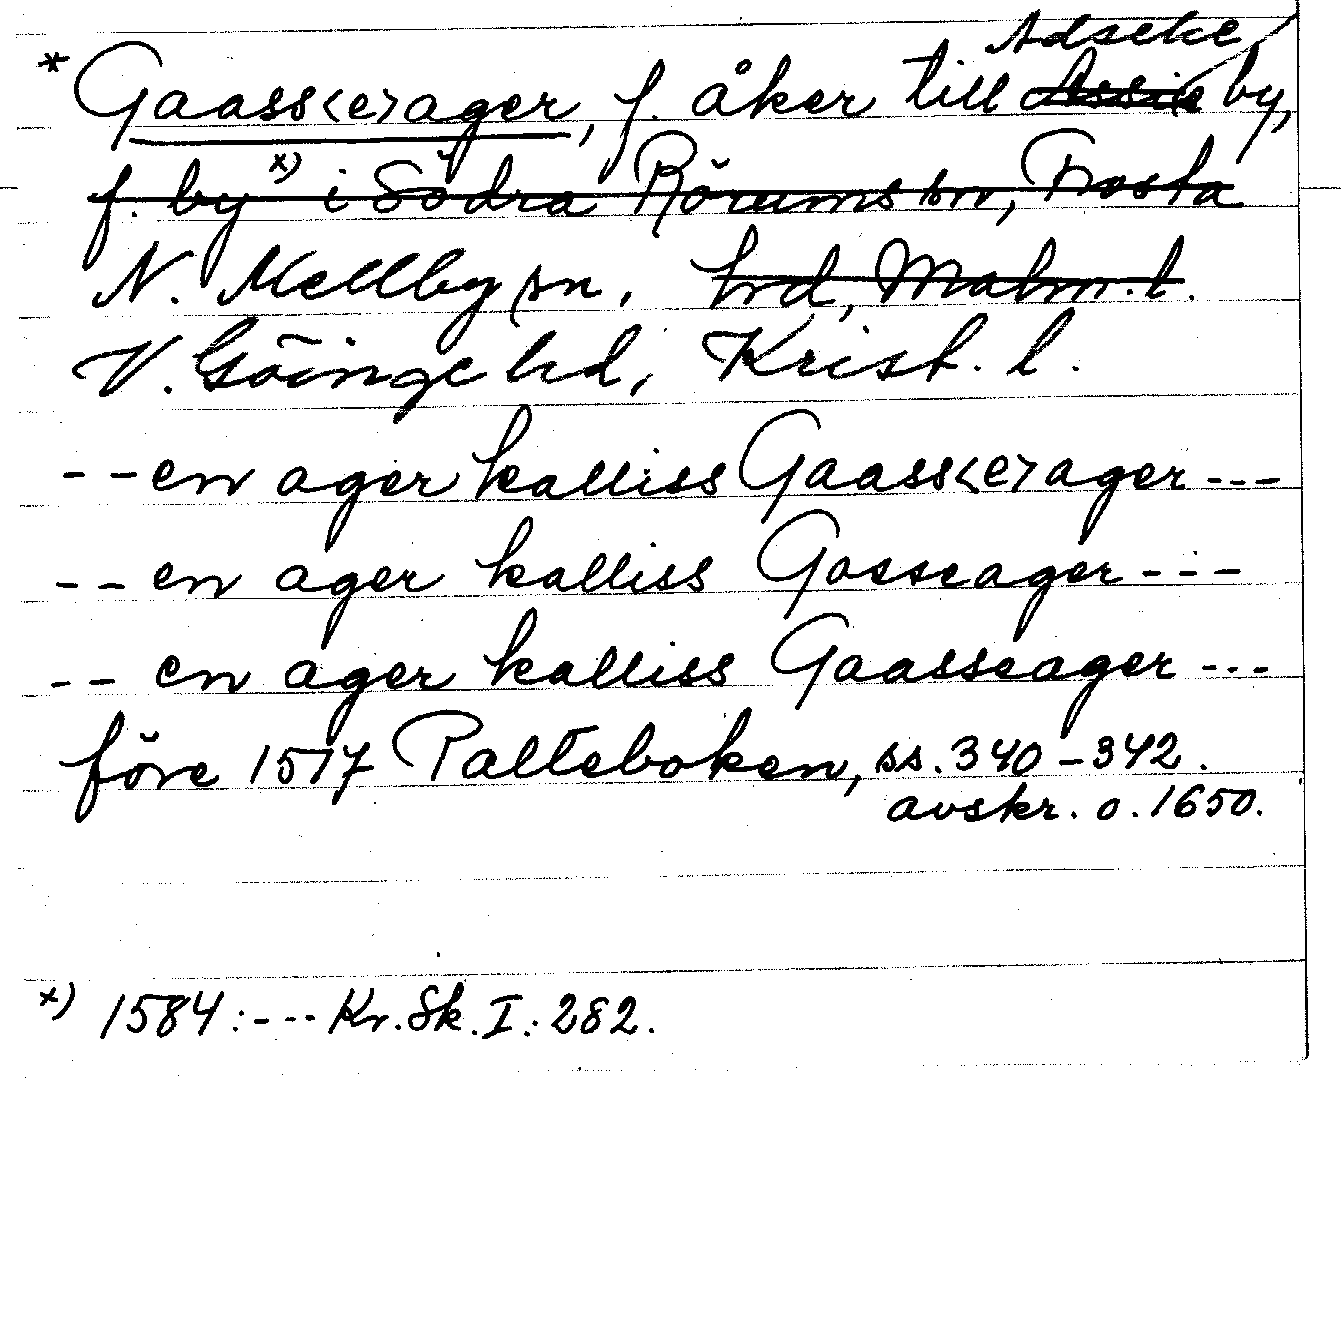 Adseke
* Gaass<e>ager, f. åker till Assie by,
f. by x) i Södra Rörums sn, Frosta
N. Mellby sn, hrd, Malm. l.
V. Göinge hd, Krist. l.
-- en ager kalliss Gaass<e>ager ---
-- en ager kalliss Gosseager ---
-- en ager kalliss Gaasseager ---
före 1517 Palteboken, ss. 340-342.
avskr. o. 1650.
x) 1584: --- Kr. Sk. I: 282.